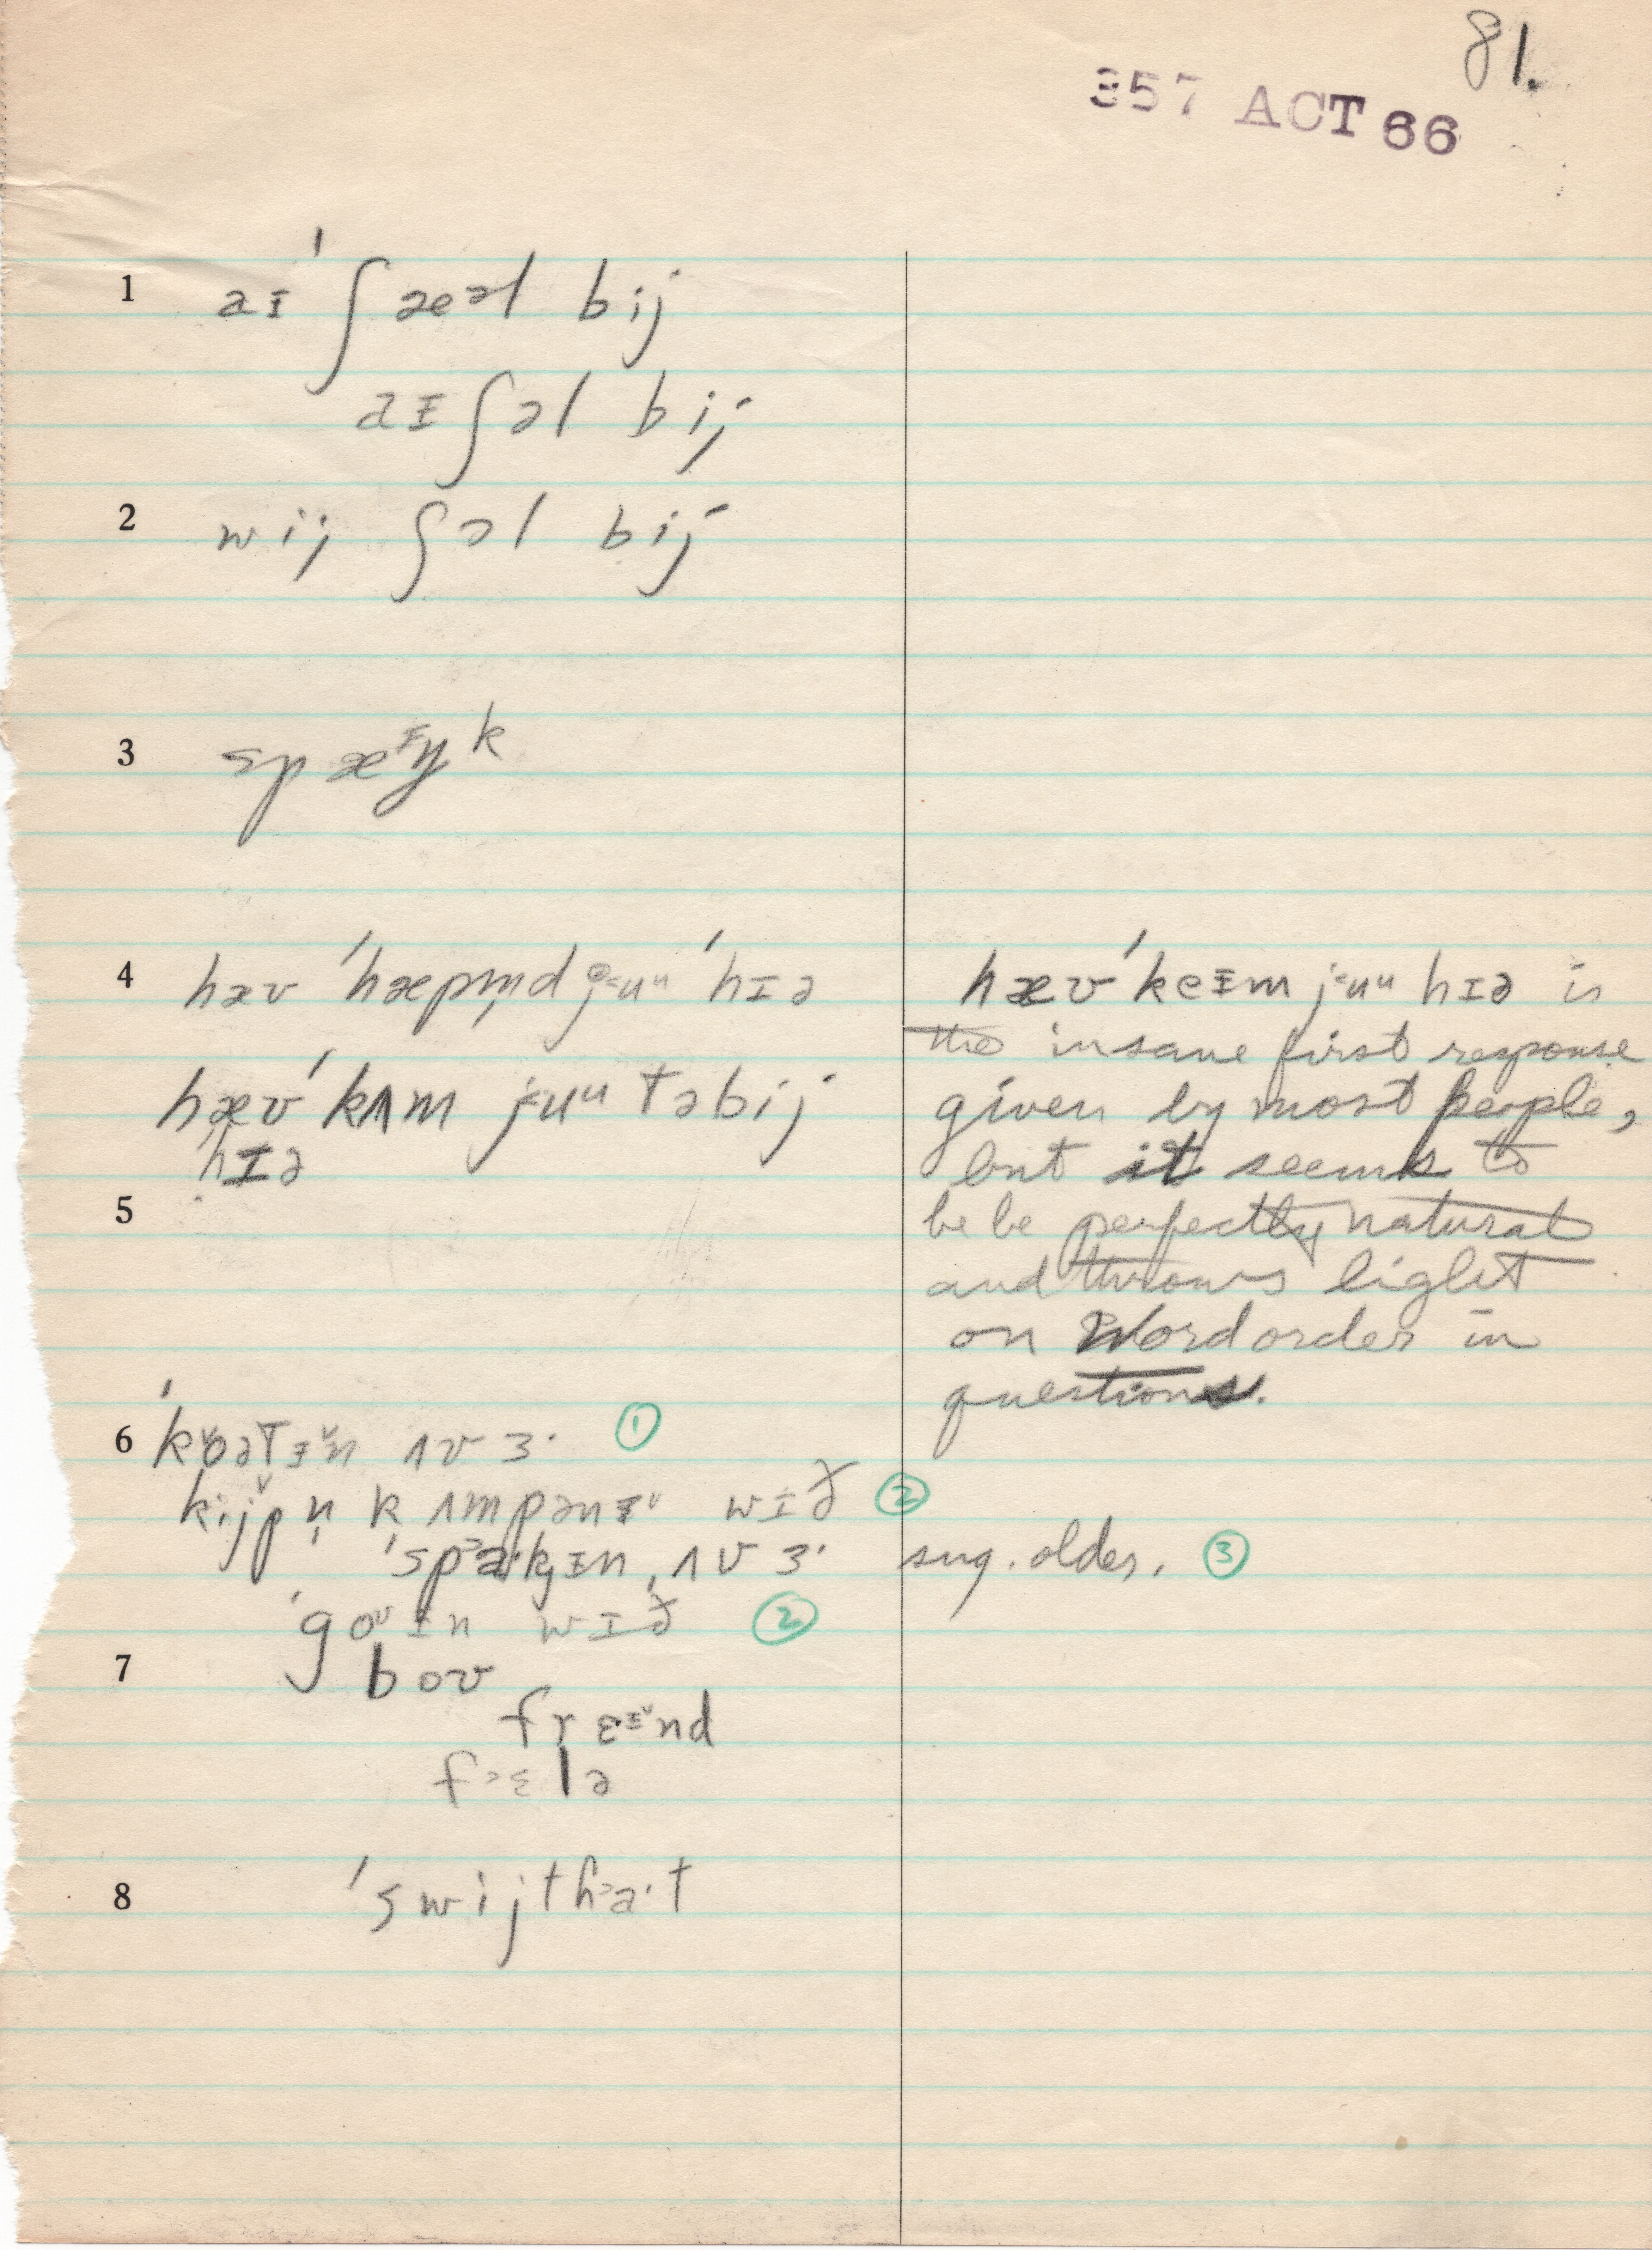 81.
357 ACT 66
1 aɪ ˈʃæəl bij
aɪ ʃəl bij
2 wij ʃəl bij
3 spæᶦŋk
4 hæv ˈhæpm̩d juᵘ ˈhɪə
hæv ˈkʌm juᵘ təbij
hɪə
hæv ˈkeɪm juᵘ hɪə is
the insane first response
given by most people,
but it seems to
be be perfectly natural
and throws light
on word order in
questions.
5
6 ˈkoətɪn ʌv ɜ· ①
kijpn̩ kʌmpənɪ wɪð ②
ˈspa·kɪn ʌv ɜ· sug. older. ③
ˈgoʊɪn wɪð ②
7 boʊ
frɛᶦnd
fɛlə
8 ˈswijtha·t